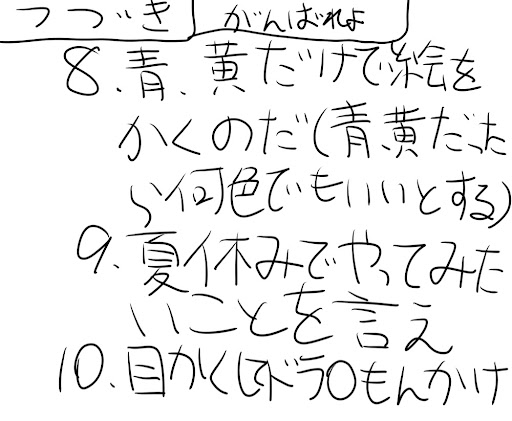 つづき
がんばれよ
8、青、黄だけで絵を
かくのだ(青、黄だった
ら何色でもいいとする)
9、夏休みでやってみた
いことを言え
10、目かくしでドラ〇もんかけ